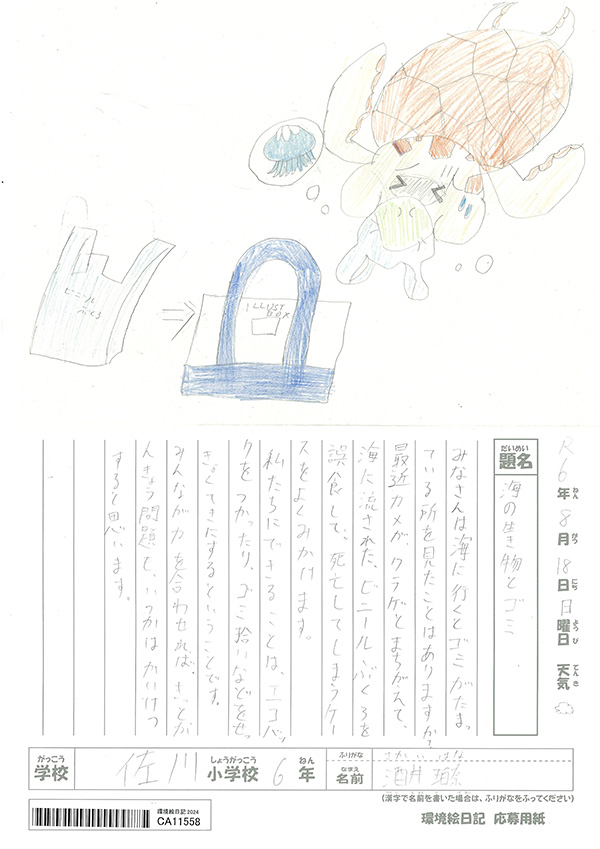 ビニール
ぶくろ
ILLUST
BOX
R6年ねん8月がつ18日にち日曜日ようび 天気てんき
だいめい
題名
海の生き物とゴミ
みなさんは海に行くとゴミがたまっ
ている所を見たことはありますか？
最近カメが、クラゲとまちがえて、
海に流された、ビニールぶくろを
誤食して、死亡してしまうケー
スをよくみかけます。
私たちにできることは、エコバッ
クをつかったり、ゴミ拾いなどをせっ
きょくてきにするということです。
みんなが力を合わせれば、きっとか
んきょう問題も、いつかはかいけつ
すると思います。
がっこう
学校
佐川
しょうがっこう
小学校
6
ねん
年
ふりがな
さかい はな
なまえ
名前
酒井
(漢字で名前を書いた場合は、ふりがなをふってください)
環境絵日記2024
CA11558
環境絵日記 応募用紙